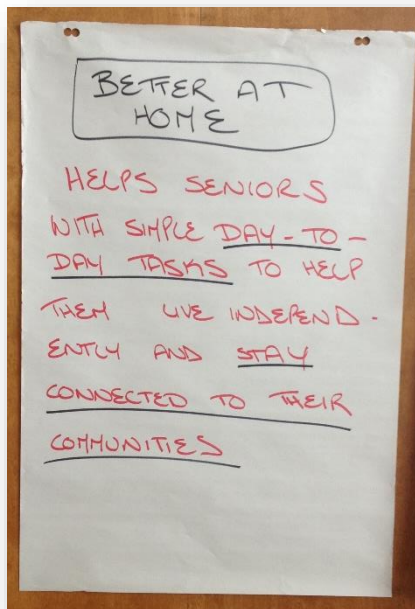 BETTER AT
HOME
HELPS SENIORS
WITH SIMPLE DAY-TO-
DAY TASKS TO HELP
THEM LIVE INDEPEND-
ENTLY AND STAY
CONNECTED TO THEIR
COMMUNITIES